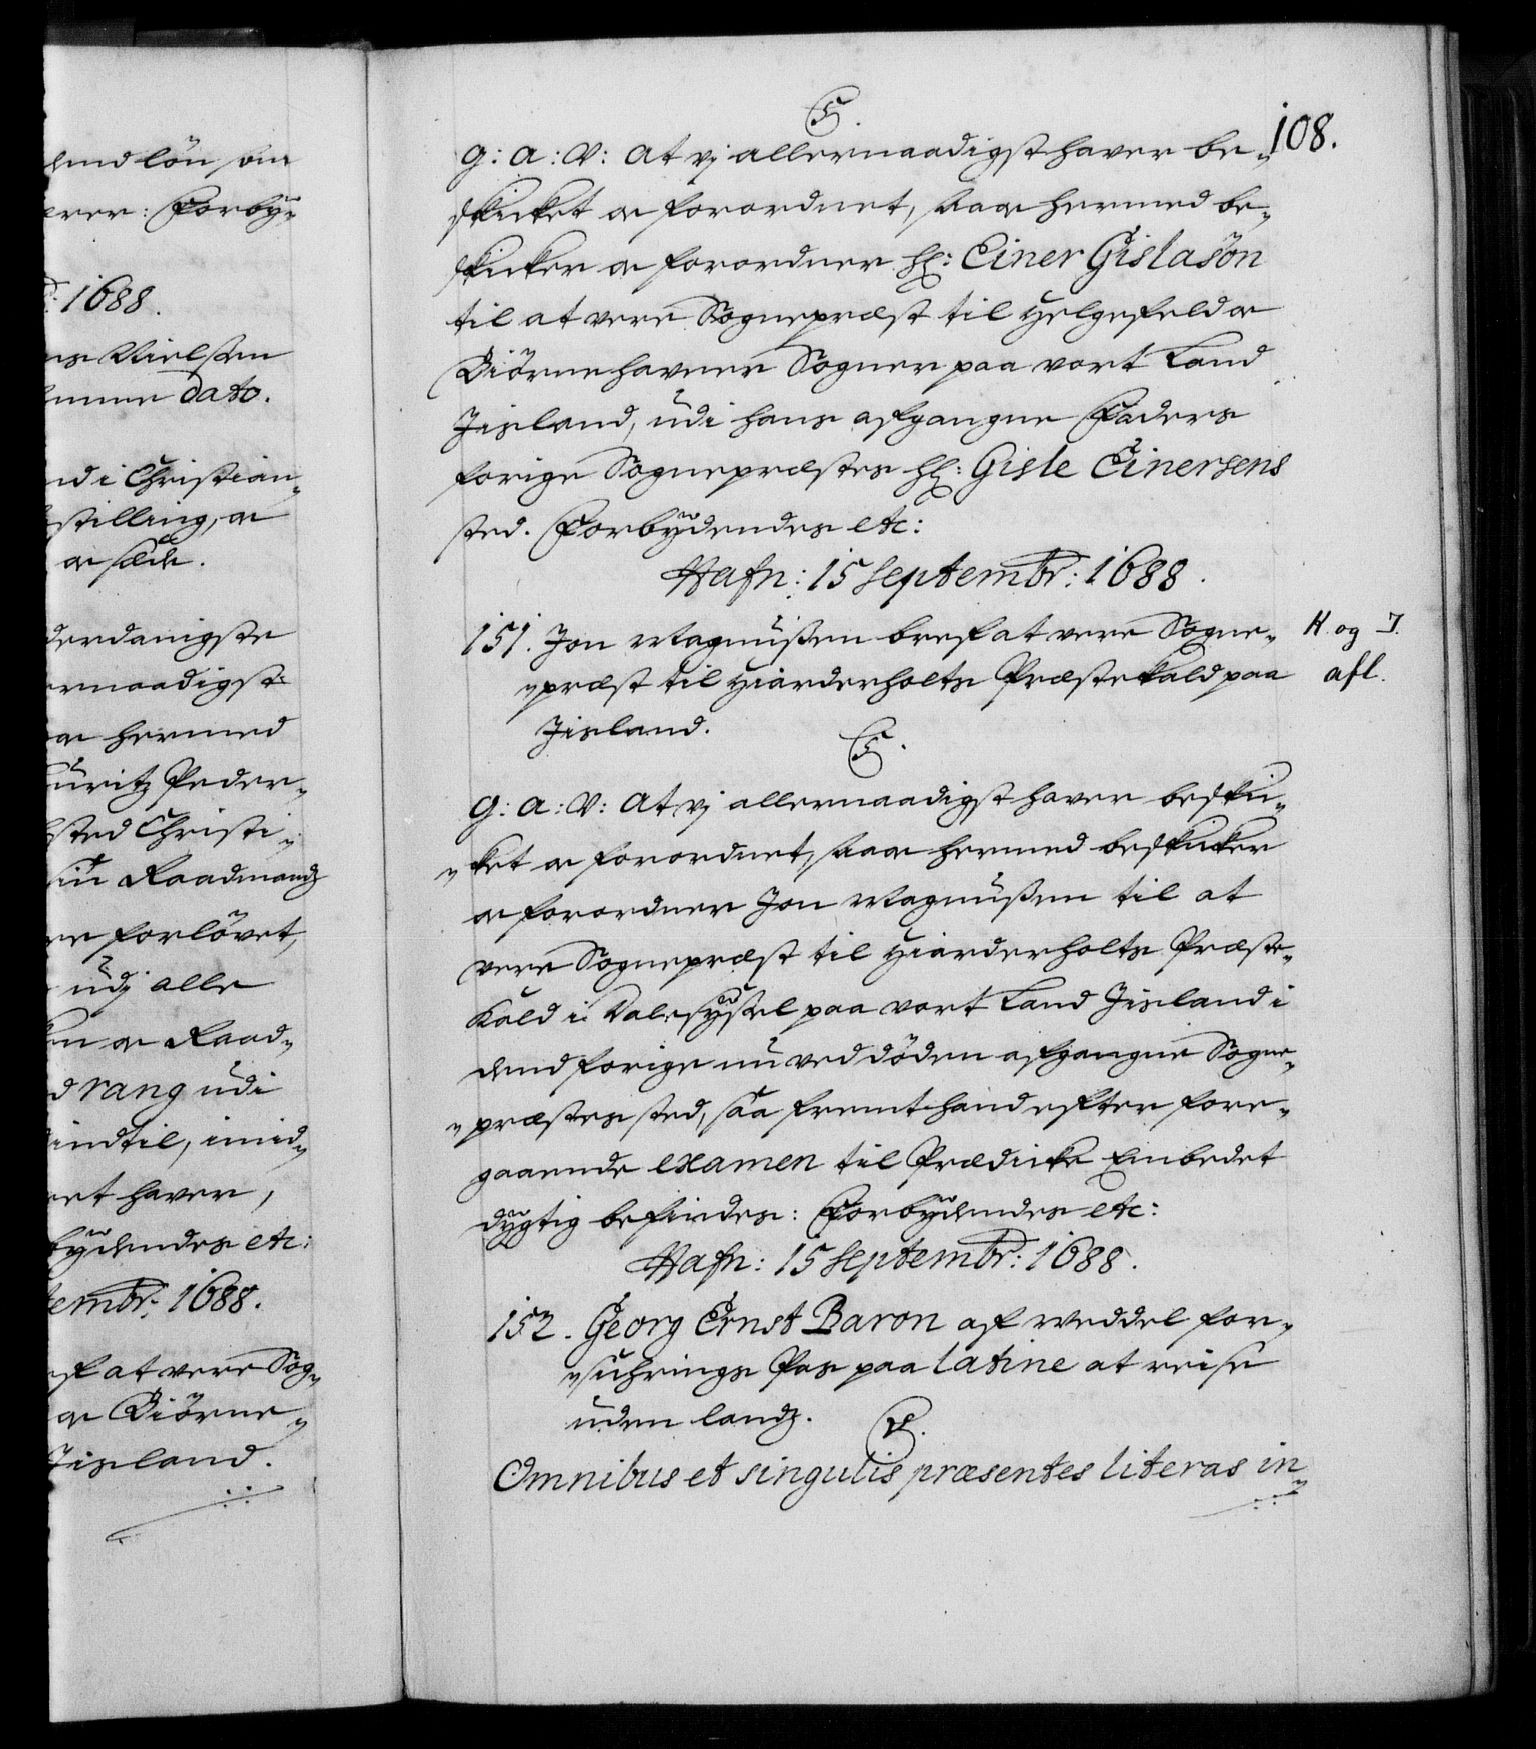 dend lön som
erer: Forbÿ-
1688.
ns Nielssen
mme dato.
nd i Christian-
stilling, oc
oc sæde.
derdanigste
ernaadigst
oc hermed
uritz Peder-
sted Christi-
Raadmands
re forlövet,
udj alle
en oc Raad-
d rang udi
indtil, imid-
et haver,
bÿdendes etc:
tembr: 1688.
ef at vere Sog-
oc Biörne-
Jisland.
C5.
108.
G: A: V: At vj allernaadigst haver be-
skicket oc forordnet, saa oc hermed be-
skicker oc forordner Hr: Einer Gislasön
til at vere Sognepræst til Helgefeld oc
Biörnehavner Sogner paa vort Land
Jisland, udi hans afgangne Faders
forige Sognepræstes Hr: Gisle Einersens
sted. Forbÿdendes etc:
Hafn: 15 Septembr: 1688.
151. Jon Magnussen bref at vere Sogne-
præst til Hiarderholts Præstekald paa
Jisland.
H. og I.
afl.
C5.
G: A: V: At vj allernaadigst haver beski-
cket oc forordnet, saa oc hermed beskicker
oc forordner Jon Magnussen til at
vere Sognepræst til Hiarderholts Præste-
Kald i Dalesÿssel paa vort Land Jisland i
dend forige nu ved döden afgangne Sogne-
præstes sted, saa fremt hand efter fore-
gaaende examen til Prædicke Embedet
dÿgtig befindes: Forbÿdendes etc:
Hafn: 15 Septembr: 1688.
152. Georg Ernst Baron af Weddel for-
suhrings Pas paa latine at reise
uden lands.
Omnibus et singulis præsentes literas in-